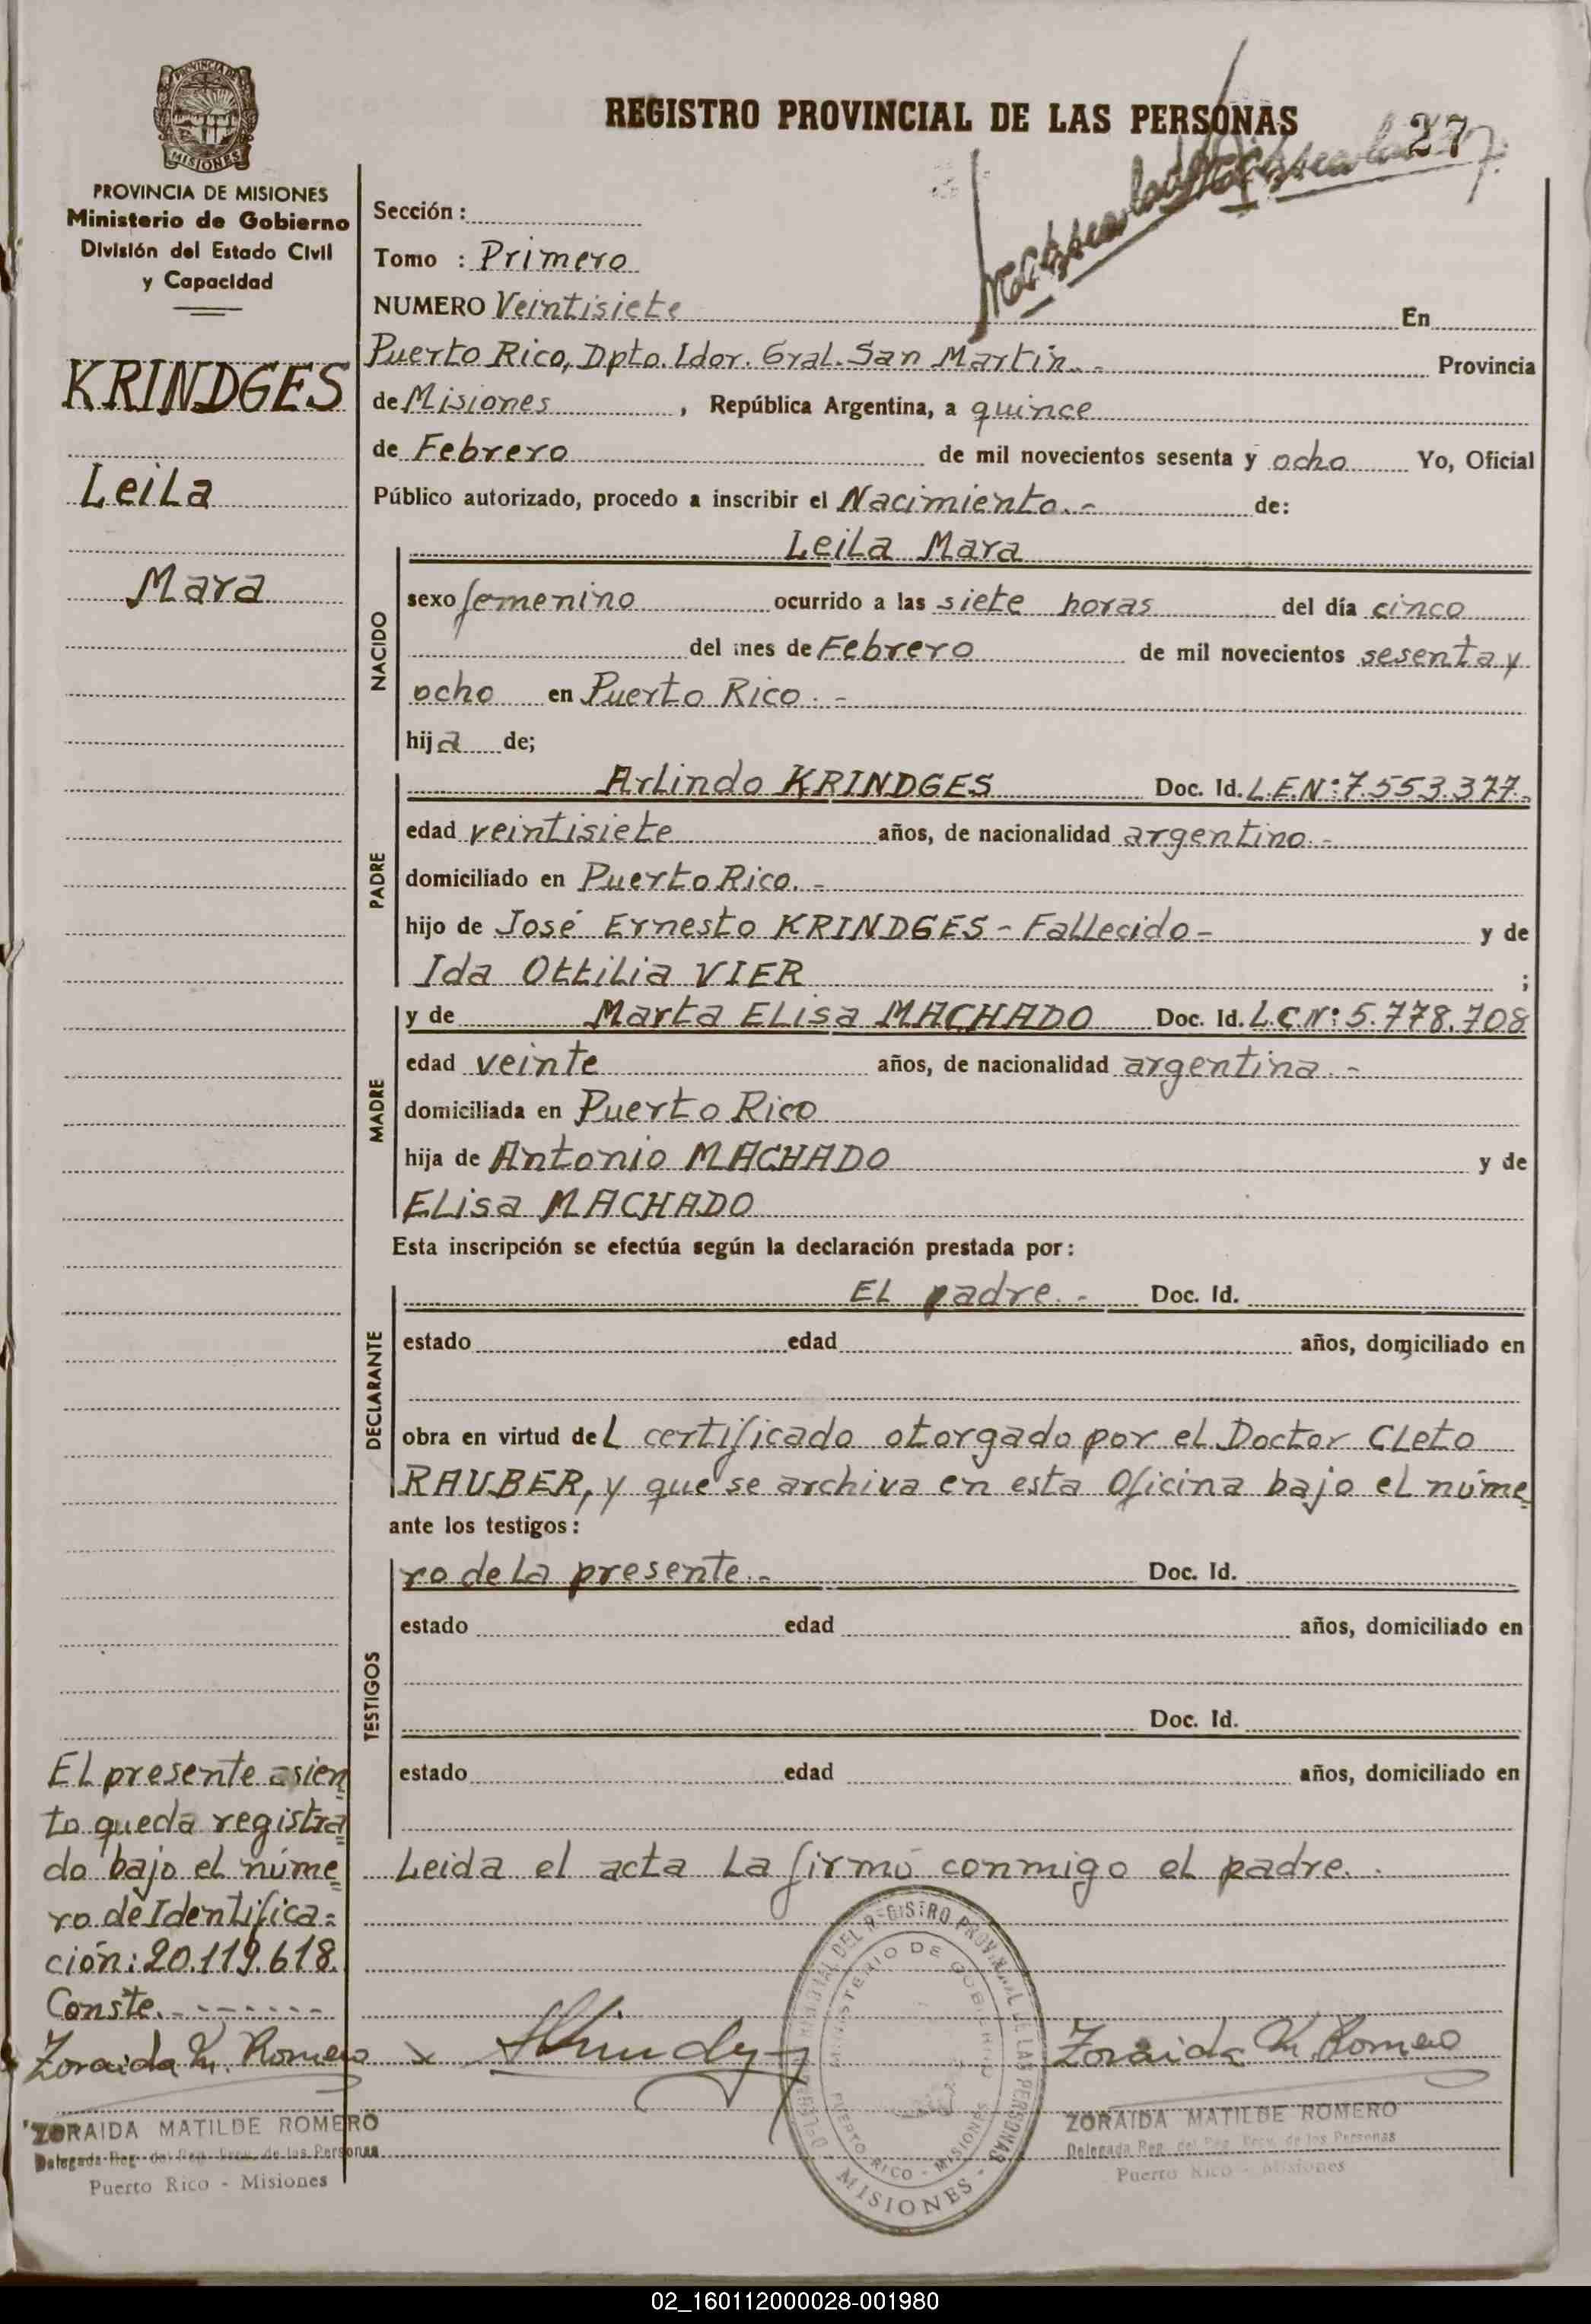 REGISTRO PROVINCIAL DE LAS PERSONAS
27
PROVINCIA DE MISIONES
MISIONES
PROVINCIA DE MISIONES
Ministerio de Gobierno
División del Estado Civil
y Capacidad
KRINDGES
Leila
Mara
Sección :
Tomo : Primero
NUMERO Veintisiete En
Puerto Rico, Dpto. Ldor. Gral. San Martín.- Provincia
de Misiones , República Argentina, a quince
de Febrero de mil novecientos sesenta y ocho Yo, Oficial
Público autorizado, procedo a inscribir el Nacimiento.- de:
NACIDO
Leila Mara
sexo femenino ocurrido a las siete horas del día cinco
del mes de Febrero de mil novecientos sesenta y
ocho en Puerto Rico.-
hija de;
PADRE
Arlindo KRINDGES Doc. Id. L.E.Nº:7.553.377.-
edad veintisiete años, de nacionalidad argentino.-
domiciliado en Puerto Rico.-
hijo de José Ernesto KRINDGES - Fallecido - y de
Ida Ottilia VIER ;
MADRE
y de Marta Elisa MACHADO Doc. Id. L.C.Nº: 5.778.708
edad veinte años, de nacionalidad argentina.-
domiciliada en Puerto Rico
hija de Antonio MACHADO y de
Elisa MACHADO
Esta inscripción se efectúa según la declaración prestada por:
DECLARANTE
El padre.- Doc. Id.
estado edad años, domiciliado en
obra en virtud del certificado otorgado por el Doctor Cleto
RAUBER, y que se archiva en esta Oficina bajo el núme
ante los testigos:
TESTIGOS
ro de la presente.- Doc. Id.
estado edad años, domiciliado en
Doc. Id.
estado edad años, domiciliado en
Leida el acta la firmó conmigo el padre.-
El presente asien
to queda registra
do bajo el núme
ro de Identifica=
ción: 20.119.618.
Conste.-------
Zoraida M. Romero
ZORAIDA MATILDE ROMERO
Delegada Reg. del Reg. Prov. de las Personas
Puerto Rico - Misiones
DEL REGISTRO PROVINCIAL DE LAS PERSONAS
MINISTERIO DE GOBIERNO
PUERTO RICO - MISIONES
- MISIONES -
Zoraida M. Romero
ZORAIDA MATILDE ROMERO
Delegada Reg. del Reg. Prov. de las Personas
Puerto Rico - Misiones
02_160112000028-001980